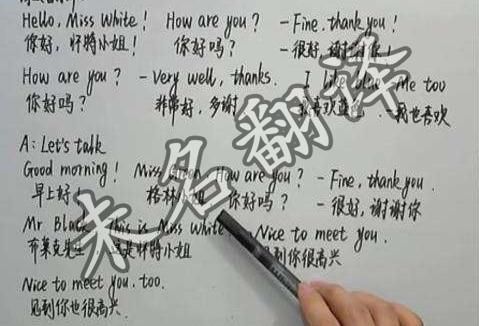 Hello, Miss White! How are you? - Fine, thank you!
你好,怀特小姐! 你好吗? - 很好,谢谢你!
How are you? - Very well, thanks. I like blue. - Me too
你好吗? 非常好,多谢 我喜欢蓝色 - 我也喜欢
A: Let's talk
Good morning! Miss Green, How are you? - Fine, thank you.
早上好! 格林小姐 你好吗? - 很好,谢谢你
Mr Black, This is Miss White Nice to meet you.
布莱克先生 这是怀特小姐 见到你很高兴
Nice to meet you, too.
见到你也很高兴
未名翻译